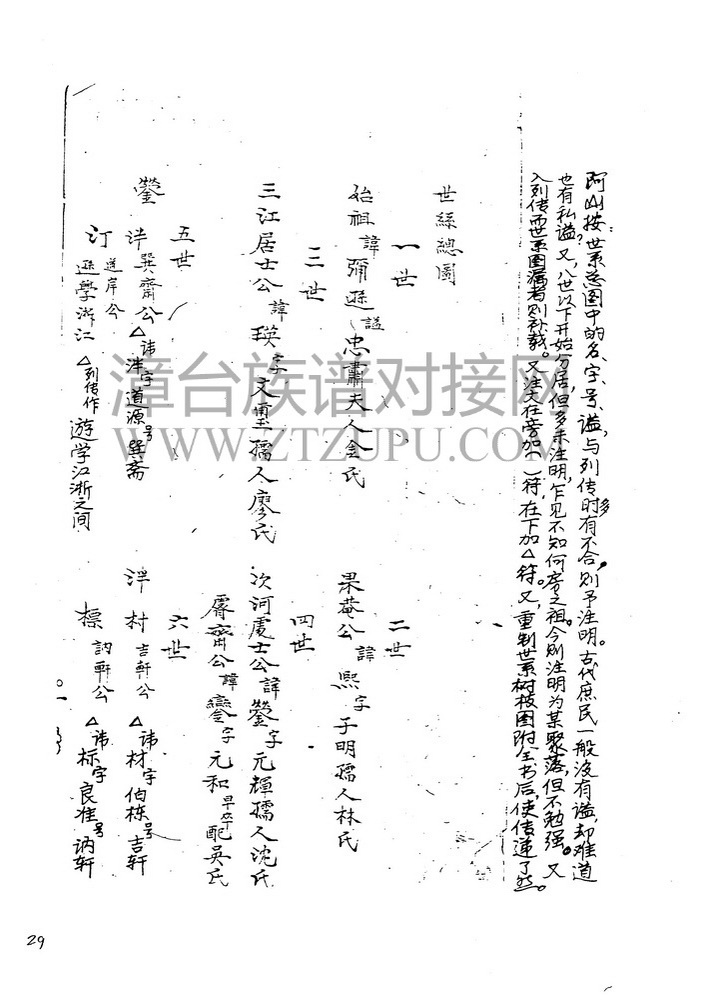 阿山按：世系总图中的名、字、号、谥，与列传时有多不合，则予注明。古代庶民一般没有谥，却难道
也有私谥？又，八世以下开始分居，但多未注明，乍见不知何房之祖。今则注明为某聚落，但不勉强。又
入列传而世系图漏者则补载。又注文在旁加（）符，在下加△符。又，重制世系树枝图附全书后，使传递了然。
世系總圖
一世
始祖諱彌遜 諡忠肅夫人金氏
二世
果菴公諱熙字子明孺人林氏
三世
三江居士公諱瑛字文璽孺人廖氏
四世
次河處士公諱鎣字元輝孺人沈氏
孱齋公諱字元和早卒配吳氏
五世
鎣
泮 巽齋公△讳泮字道源号巽斋
汀 道岸公 遊學浙江△列传作遊学江浙之间
六世
泮 村 吉軒公△讳材字伯栋号吉轩
標 訥軒公△讳标字良准号讷轩
漳台族谱对接网
WWW.ZTZUPU.COM
29